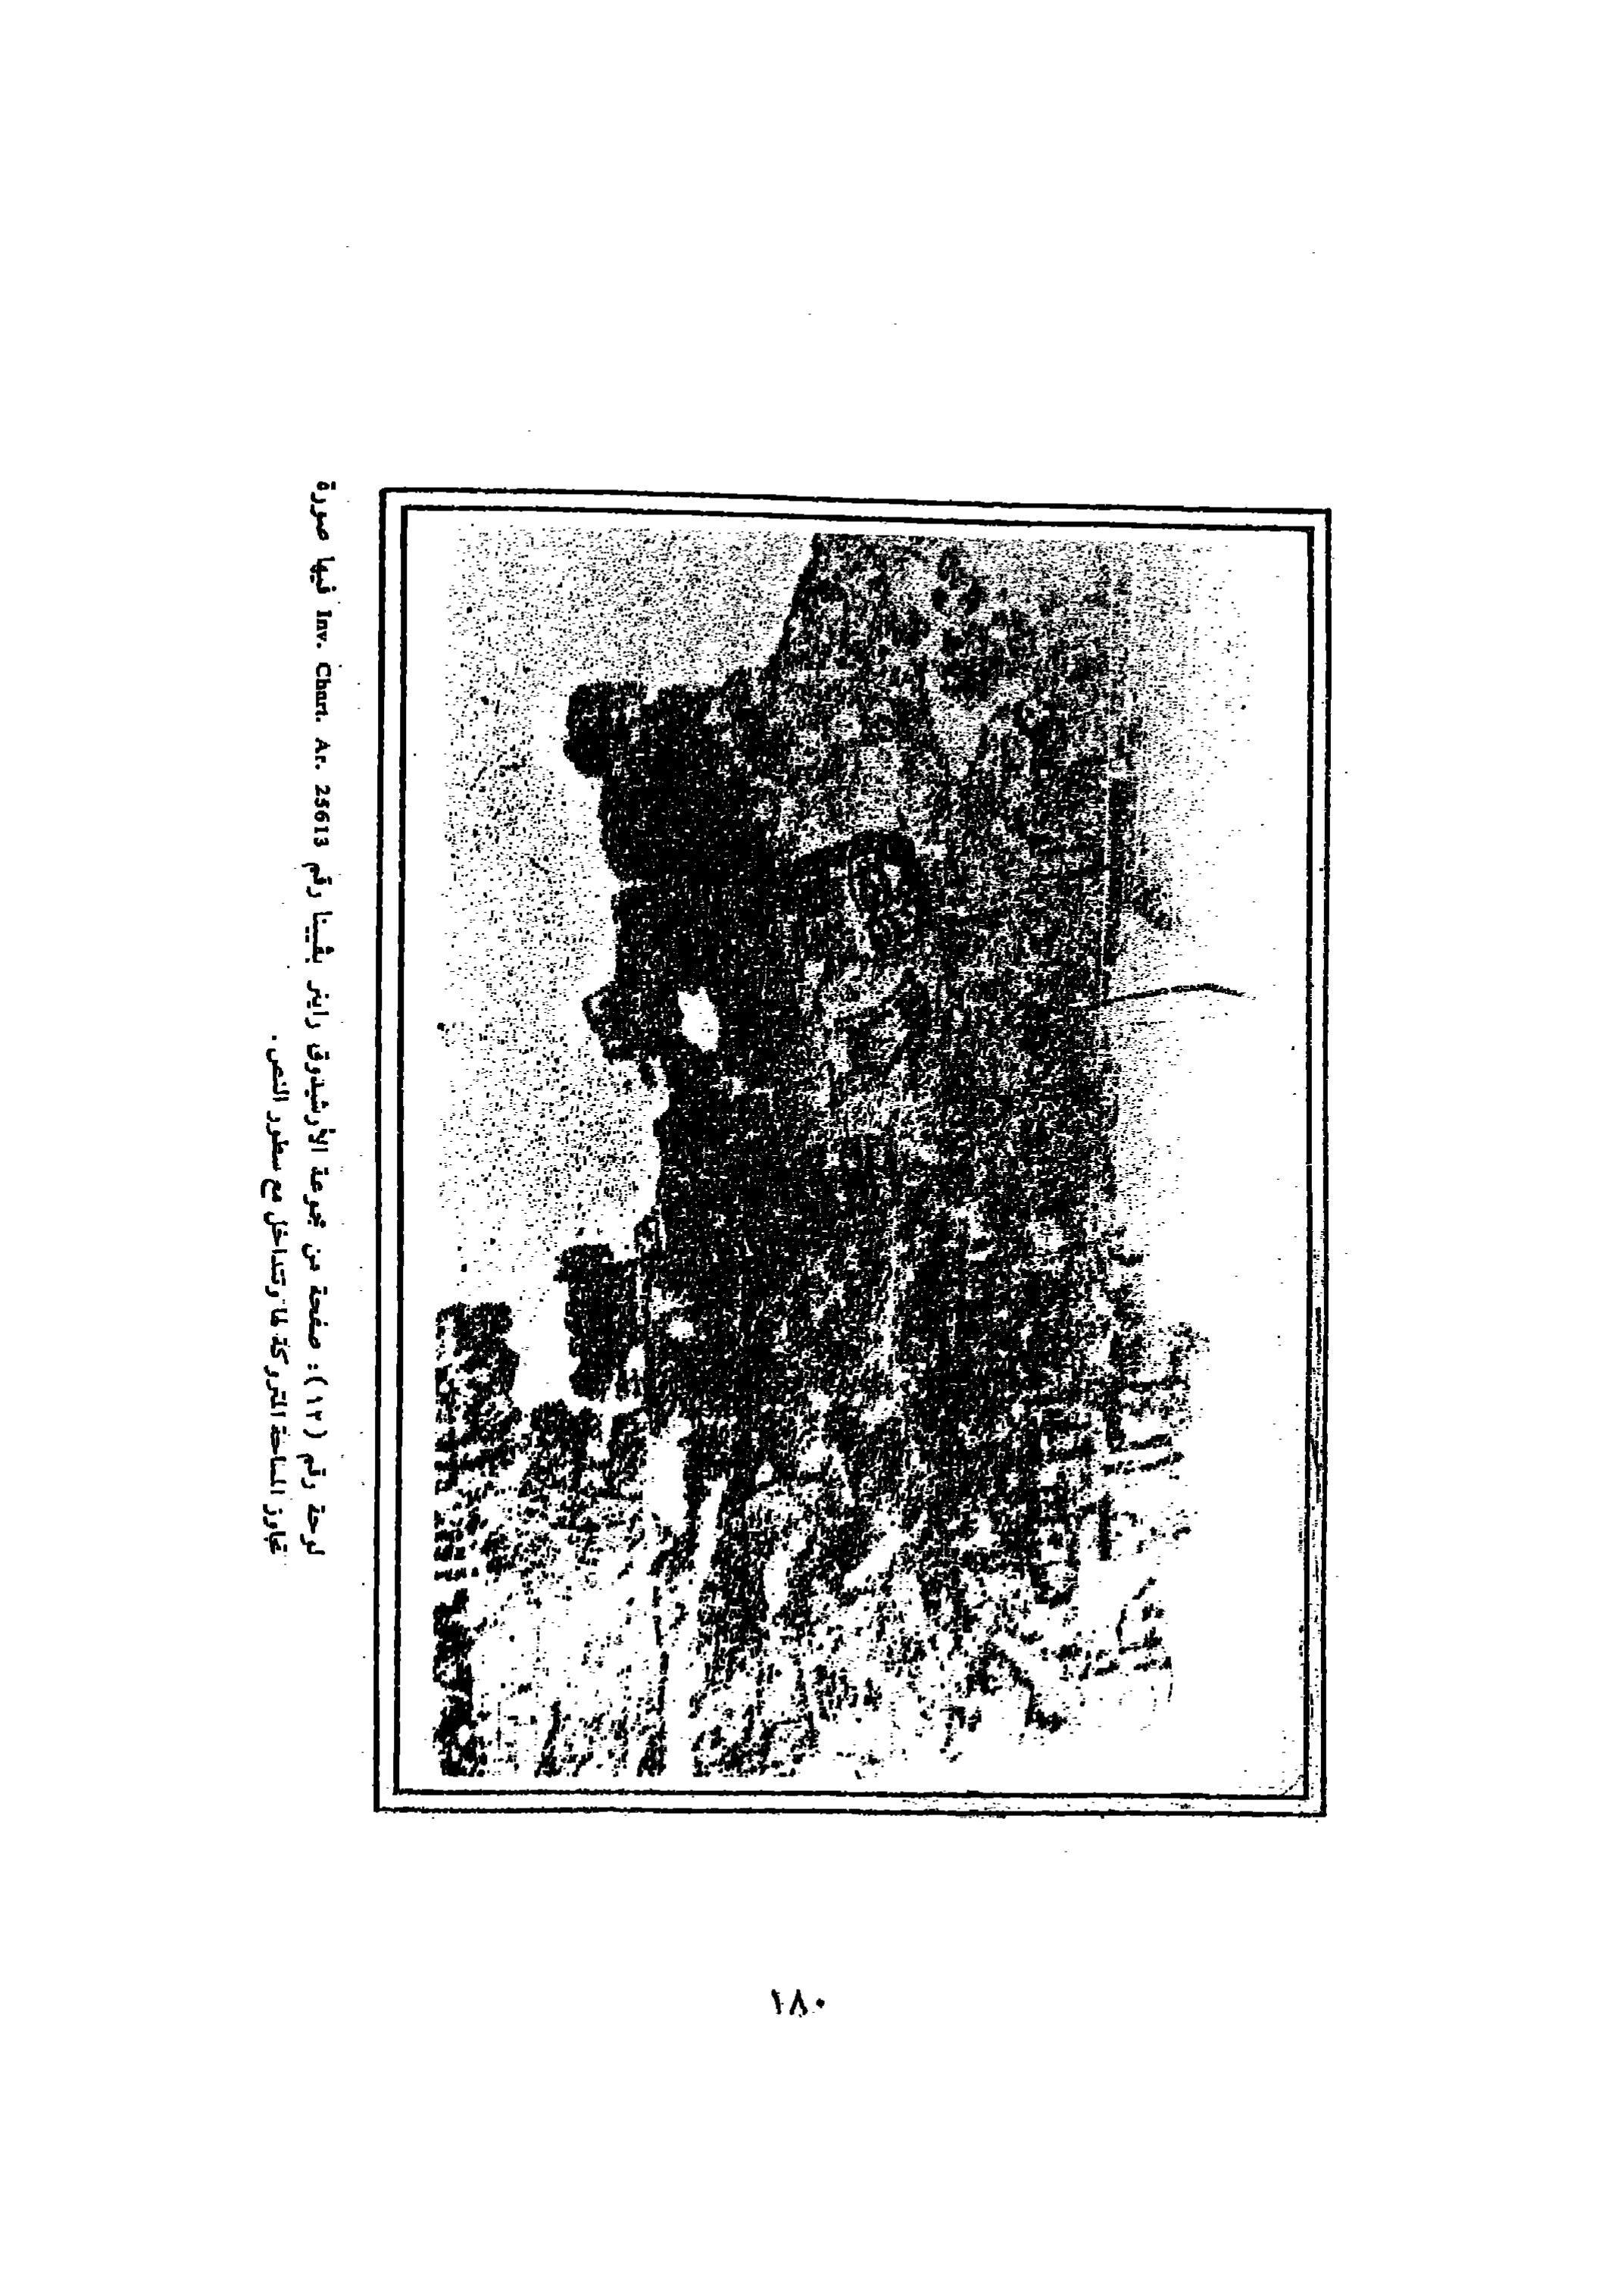 لوحة رقم (١٢): صفحة من مجموعة الأرشيدوق راينر بفيينا رقم Inv. Chart. Ar. 25613 فيها صورة
تجاوز المساحة المتروكة لها وتتداخل مع سطور النص.
١٨٠